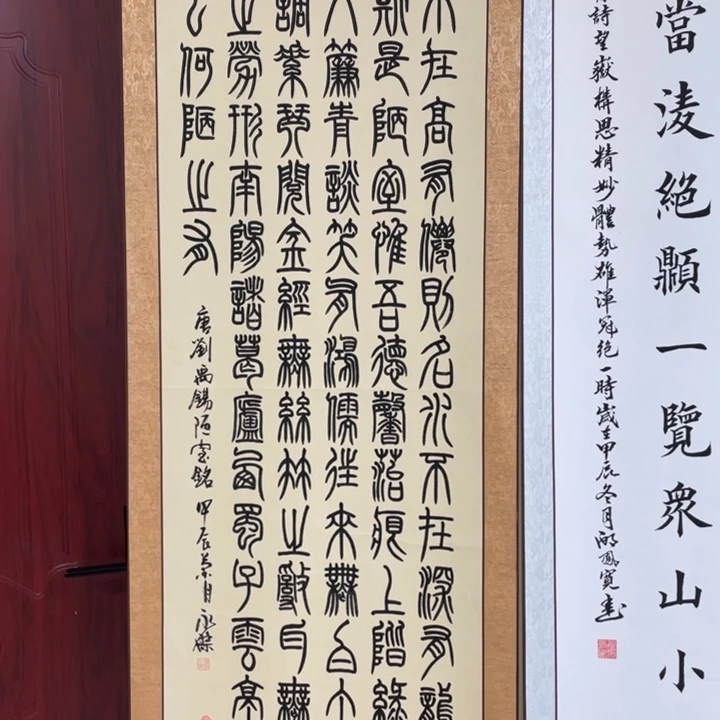 當凌絕𩕢一覽眾山小
詩望嶽構思精妙體勢雄渾冠絕一時歲在甲辰冬月鳳寬書
不在高有僊則名水不在深有龍
斯是陋室惟吾德馨苔痕上階綠
入簾青談笑有鴻儒往來無白丁
調素琴閱金經無絲竹之亂耳無
之勞形南陽諸葛廬西蜀子雲亭
云何陋之有
唐劉禹錫陋室銘 甲辰月永傑